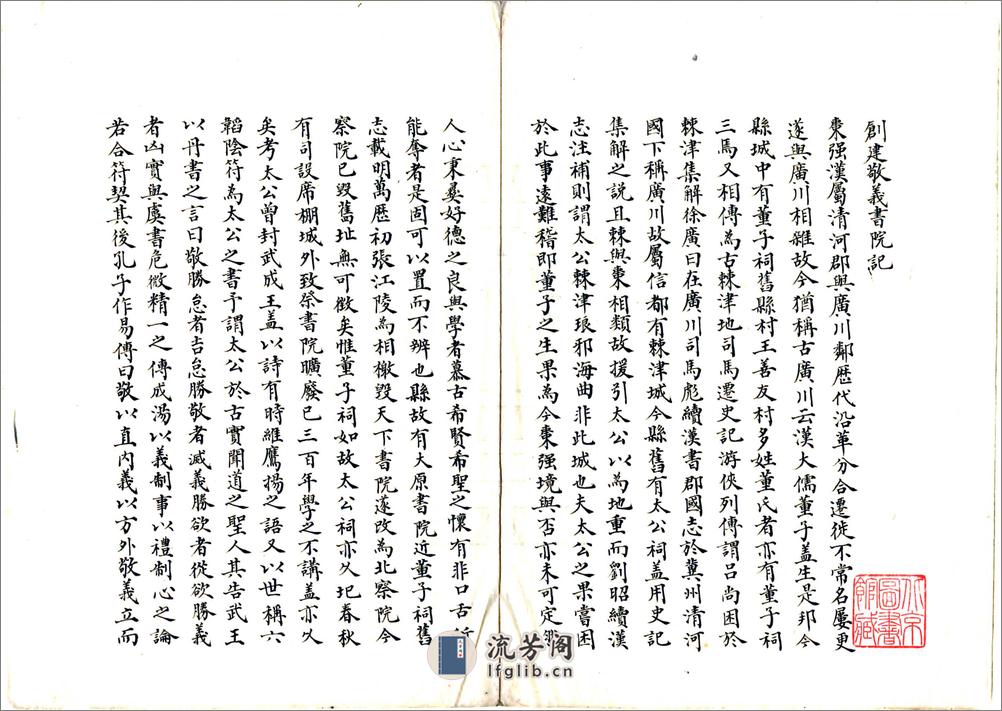 創建敬義書院記
棗强漢屬清河郡與廣川鄰歷代沿革分合遷徙不常名屢更
遂與廣川相雜故今猶稱古廣川云漢大儒董子盖生是邦今
縣城中有董子祠舊縣村王善友村多姓董氏者亦有董子祠
三焉又相傳為古棘津地司馬遷史記游俠列傳謂呂尚困於
棘津集解徐廣曰在廣川司馬彪續漢書郡國志於冀州清河
國下稱廣川故屬信都有棘津城今縣舊有太公祠盖用史記
集解之說且棘與棗相類故援引太公以為地重而劉昭續漢
志注補則謂太公棘津琅邪海曲非此城也夫太公之果嘗困
於此事遠難稽即董子之生果為今棗强境與否亦未可定
人心秉彝好德之良與學者慕古希賢希聖之懷有非口舌所
能奪者是固可以置而不辨也縣故有大原書院近董子祠舊
志載明萬歷初張江陵為相檄毀天下書院遂改為北察院今
察院已毀舊址無可徵矣惟董子祠如故太公祠亦久圯春秋
有司設席棚城外致祭書院曠廢已三百年學之不講盖亦久
矣考太公曾封武成王盖以詩有時維鷹揚之語又以世稱六
韜陰符為太公之書予謂太公於古實聞道之聖人其告武王
以丹書之言曰敬勝怠者吉怠勝敬者滅義勝欲者從欲勝義
者凶實與虞書危微精一之傳成湯以義制事以禮制心之論
若合符契其後孔子作易傳曰敬以直內義以方外敬義立而
北京
圖書
館藏
流芳阁
lfglib.cn